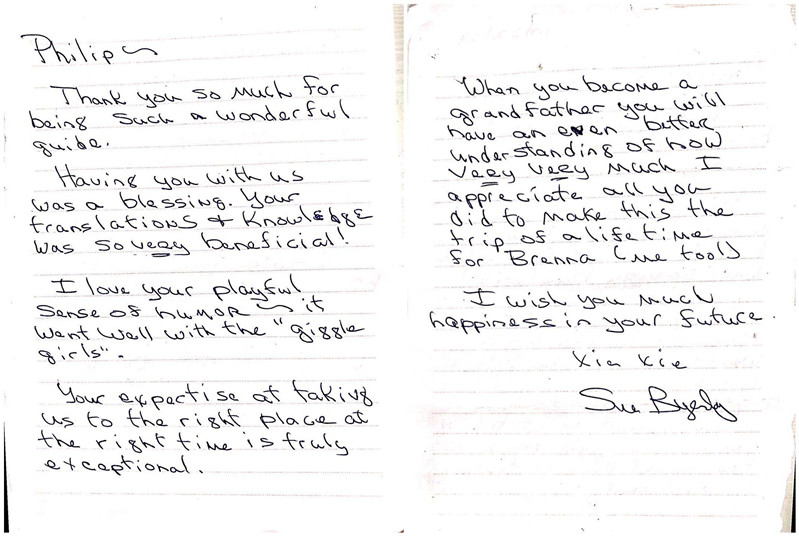 Philip ~
Thank you so much for
being such a wonderful
guide.
Having you with us
was a blessing. Your
translations & knowledge
was so very beneficial!
I love your playful
sense of humor ~ it
went well with the "giggle
girls".
Your expertise at taking
us to the right place at
the right time is truly
exceptional.
When you become a
grandfather you will
have an even better
understanding of how
very very much I
appreciate all you
did to make this the
trip of a lifetime
for Brenna (me too!)
I wish you much
happiness in your future.
Xie Xie
Sue Byerly